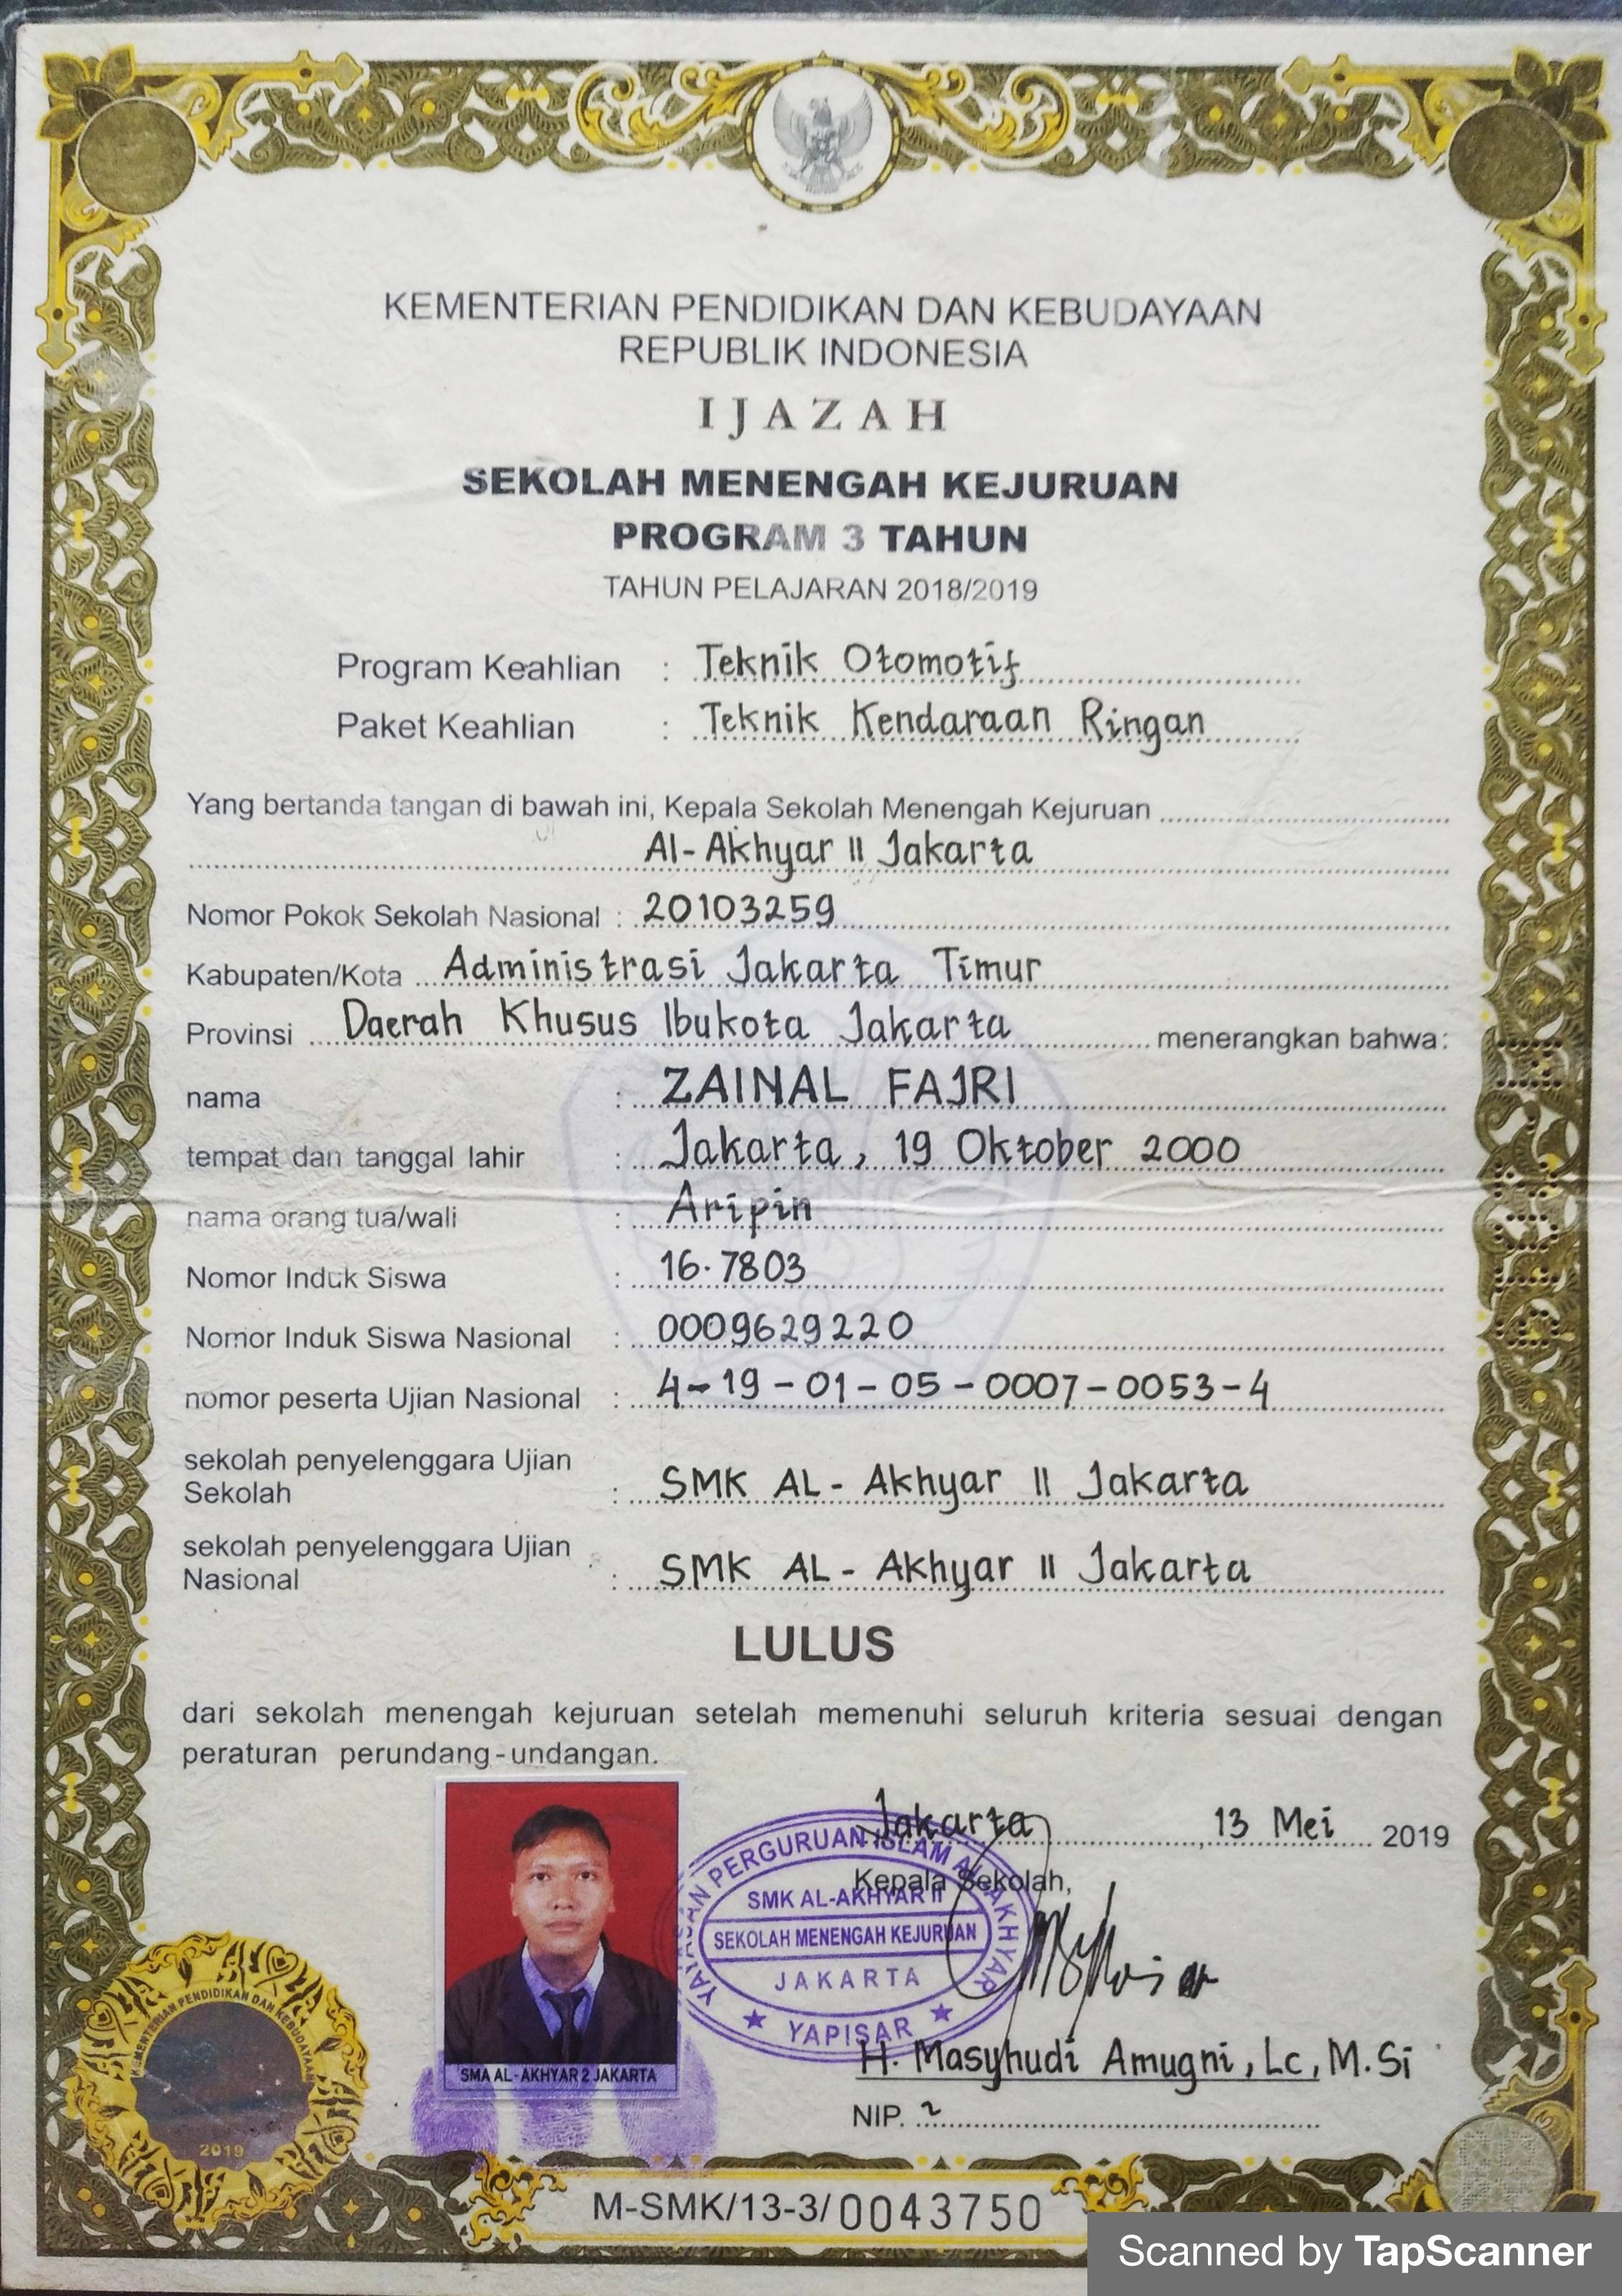 KEMENTERIAN PENDIDIKAN DAN KEBUDAYAAN
REPUBLIK INDONESIA
IJAZAH
SEKOLAH MENENGAH KEJURUAN
PROGRAM 3 TAHUN
TAHUN PELAJARAN 2018/2019
Program Keahlian : Teknik Otomotif
Paket Keahlian : Teknik Kendaraan Ringan
Yang bertanda tangan di bawah ini, Kepala Sekolah Menengah Kejuruan
Al-Akhyar II Jakarta
Nomor Pokok Sekolah Nasional : 20103259
Kabupaten/Kota Administrasi Jakarta Timur
Provinsi Daerah Khusus Ibukota Jakarta menerangkan bahwa:
nama : ZAINAL FAJRI
tempat dan tanggal lahir : Jakarta, 19 Oktober 2000
nama orang tua/wali : Aripin
Nomor Induk Siswa : 16.7803
Nomor Induk Siswa Nasional : 0009629220
nomor peserta Ujian Nasional : 4-19-01-05-0007-0053-4
sekolah penyelenggara Ujian
Sekolah : SMK AL-Akhyar II Jakarta
sekolah penyelenggara Ujian
Nasional : SMK AL-Akhyar II Jakarta
LULUS
dari sekolah menengah kejuruan setelah memenuhi seluruh kriteria sesuai dengan
peraturan perundang-undangan.
Jakarta, 13 Mei 2019
Kepala Sekolah,
YAYASAN PERGURUAN ISLAM AL AKHYAR
SMK AL-AKHYAR II
SEKOLAH MENENGAH KEJURUAN
JAKARTA
YAPISAR
H. Masyhudi Amugni, Lc, M.Si
NIP.
SMA AL-AKHYAR 2 JAKARTA
KEMENTERIAN PENDIDIKAN DAN KEBUDAYAAN
2019
M-SMK/13-3/0043750
Scanned by TapScanner